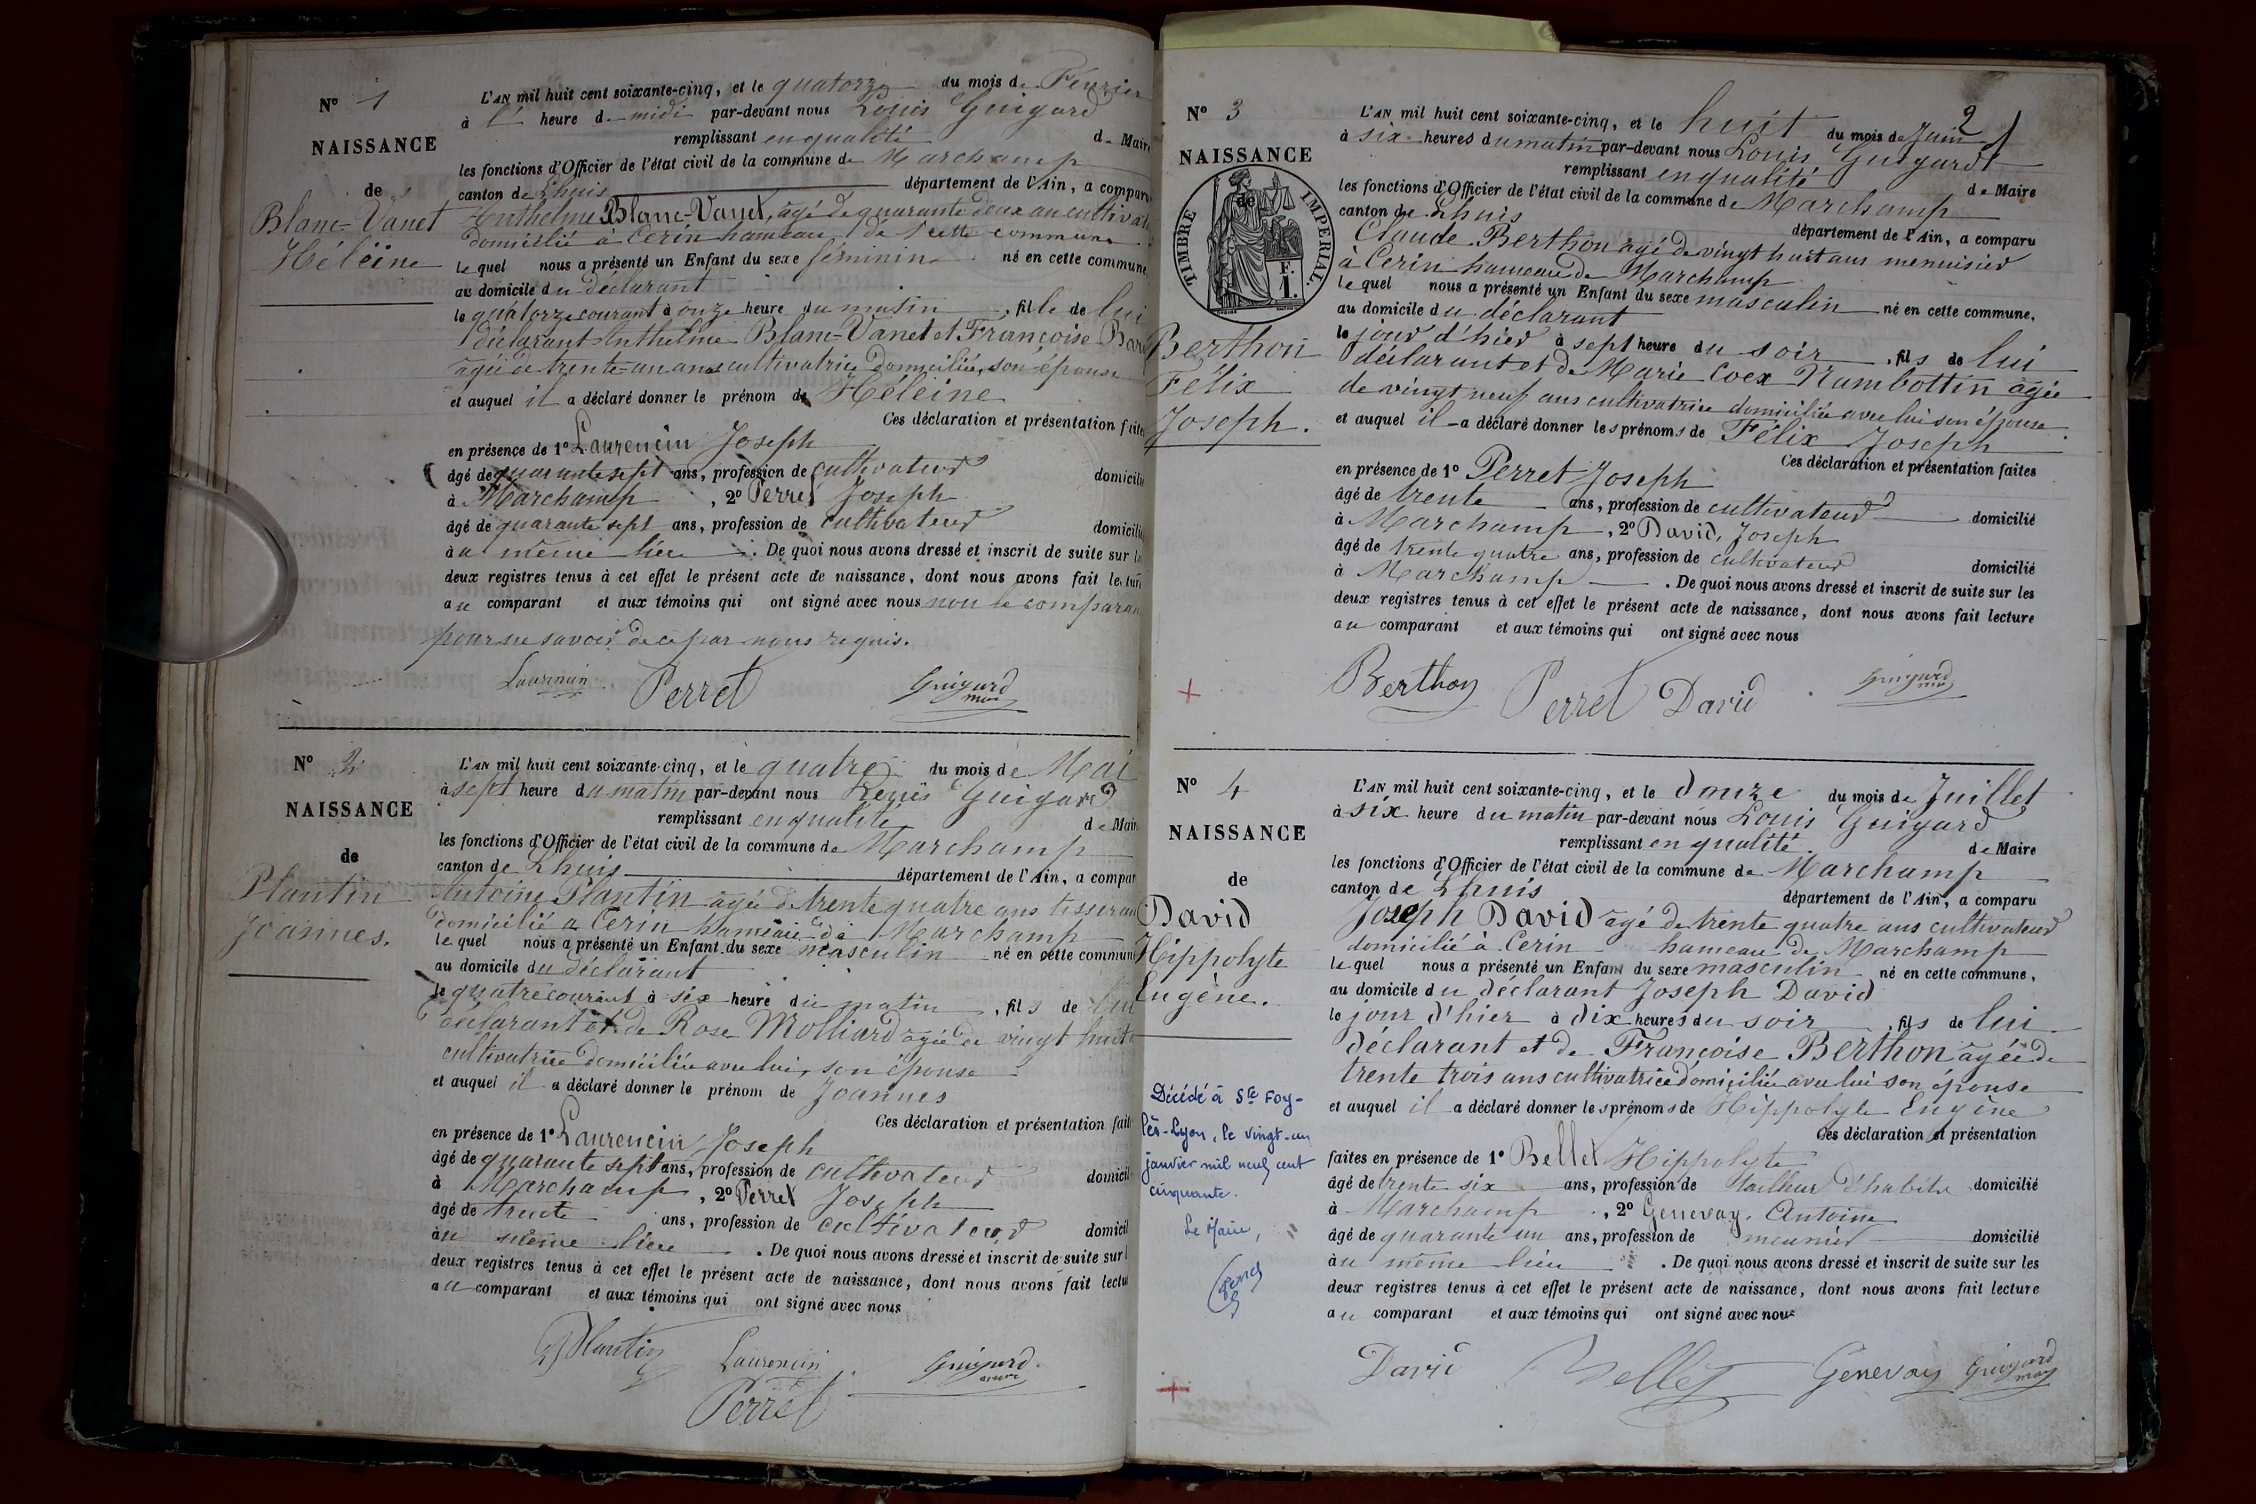 N° 1
NAISSANCE
de
Blanc-Vanet
Héléine
L'AN mil huit cent soixante-cinq, et le quatorze du mois de Février
à l' heure de midi par-devant nous Louis Guigard
remplissant en qualité de Maire
les fonctions d'Officier de l'état civil de la commune de Marchamp
canton de Lhuis département de l'Ain, a comparu
Anthelme Blanc-Vanet, âgé de quarante deux an cultivat
domicilié à Cerin hameau de cette commune
le quel nous a présenté un Enfant du sexe féminin né en cette commune
au domicile du déclarant
le quatorze courant à onze heure du matin, fille de lui
déclarant Anthelme Blanc-Vanet et Françoise
âgée de trente-un ans cultivatrice domiciliée, son épouse
et auquel il a déclaré donner le prénom de Héléine
Ces déclaration et présentation faites
en présence de 1° Laurencin Joseph
âgé de quarante sept ans, profession de cultivateur domicilié
à Marchamp, 2° Perret Joseph
âgé de quarante sept ans, profession de cultivateur domicilié
à u même lieu. De quoi nous avons dressé et inscrit de suite sur le
deux registres tenus à cet effet le présent acte de naissance, dont nous avons fait lecture
au comparant et aux témoins qui ont signé avec nous non le comparan
pour ne savoir de ce par nous requis.
Laurencin Perret Guigard
maire
N° 2
NAISSANCE
de
Plantin
Joannes.
L'AN mil huit cent soixante-cinq, et le quatre du mois de Mai
à sept heure du matin par-devant nous Louis Guigard
remplissant en qualité de Mair
les fonctions d'Officier de l'état civil de la commune de Marchamp
canton de Lhuis département de l'Ain, a compar
Antoine Plantin âgé de trente quatre ans tisseran
domicilié a Cerin hameau de Marchamp
le quel nous a présenté un Enfant du sexe masculin né en cette commune
au domicile du déclarant
le quatre courant à six heure du matin, fils de lui
déclarant et de Rose Molliard âgée de vingt huit
cultivatrice domiciliée avec lui, son épouse
et auquel il a déclaré donner le prénom de Joannes
Ces déclaration et présentation fait
en présence de 1° Laurencin Joseph
âgé de quarante sept ans, profession de cultivateur domicil
à Marchamp, 2° Perret Joseph
âgé de trente ans, profession de cultivateur domicil
àu même lieu. De quoi nous avons dressé et inscrit de suite sur l
deux registres tenus à cet effet le présent acte de naissance, dont nous avons fait lectu
au comparant et aux témoins qui ont signé avec nous
Plantin Laurencin Guigard
maire
Perret
2
N° 3
NAISSANCE
de
TIMBRE IMPERIAL.
Berthon
Félix
Joseph.
L'AN mil huit cent soixante-cinq, et le huit du mois de Juin
à six heures du matin par-devant nous Louis Guigard
remplissant en qualité de Maire
les fonctions d'Officier de l'état civil de la commune de Marchamp
canton de Lhuis département de l'Ain, a comparu
Claude Berthon âgé de vingt huit ans menuisier
à Cerin hameau de Marchamp
le quel nous a présenté un Enfant du sexe masculin né en cette commune,
au domicile du déclarant
le jour d'hier à sept heure du soir, fils de lui
déclarant et de Marie Coex Nambottin âgée
de vingt neuf ans cultivatrice domiciliée avec lui son épouse
et auquel il a déclaré donner les prénoms de Félix Joseph
Ces déclaration et présentation faites
en présence de 1° Perret Joseph
âgé de trente ans, profession de cultivateur domicilié
à Marchamp, 2° David, Joseph
âgé de trente quatre ans, profession de cultivateur domicilié
à Marchamp. De quoi nous avons dressé et inscrit de suite sur les
deux registres tenus à cet effet le présent acte de naissance, dont nous avons fait lecture
au comparant et aux témoins qui ont signé avec nous
Berthon Perret David Guigard
N° 4
NAISSANCE
de
David
Hippolyte
Eugène.
L'AN mil huit cent soixante-cinq, et le douze du mois de Juillet
à six heure du matin par-devant nous Louis Guigard
remplissant en qualité de Maire
les fonctions d'Officier de l'état civil de la commune de Marchamp
canton de Lhuis département de l'Ain, a comparu
Joseph David âgé de trente quatre ans cultivateur
domicilié à Cerin hameau de Marchamp
le quel nous a présenté un Enfant du sexe masculin né en cette commune,
au domicile du déclarant Joseph David
le jour d'hier à dix heures du soir, fils de lui
déclarant et de Françoise Berthon âgée de
trente trois ans cultivatrice domiciliée avec lui son épouse
et auquel il a déclaré donner les prénoms de Hippolyte Eugène
Ces déclaration et présentation
faites en présence de 1° Bellet Hippolyte
âgé de trente six ans, profession de tailleur d'habits domicilié
à Marchamp, 2° Genevay Antoine
âgé de quarante un ans, profession de meunier domicilié
àu même lieu. De quoi nous avons dressé et inscrit de suite sur les
deux registres tenus à cet effet le présent acte de naissance, dont nous avons fait lecture
au comparant et aux témoins qui ont signé avec nous
David Bellet Genevay Guigard
Décédé à Ste Foy-
lès-Lyon, le vingt-un
janvier mil neuf cent
cinquante.
Le Maire,